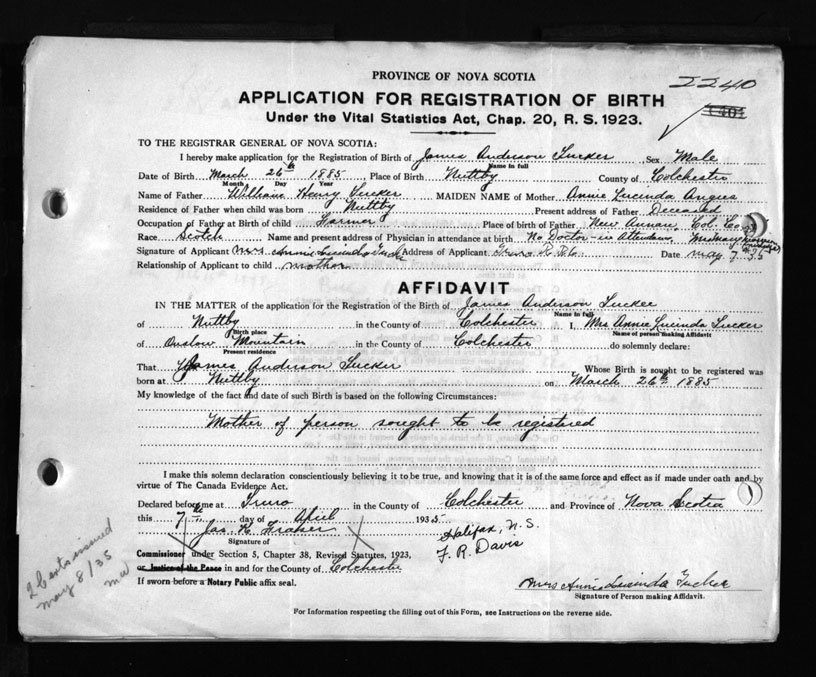 PROVINCE OF NOVA SCOTIA
2240
APPLICATION FOR REGISTRATION OF BIRTH
Under the Vital Statistics Act, Chap. 20, R. S. 1923.
TO THE REGISTRAR GENERAL OF NOVA SCOTIA:
I hereby make application for the Registration of Birth of James Anderson Tucker Sex Male
Name in full
Date of Birth March 26th 1885 Place of Birth Nuttby County of Colchester
Month Day Year
Name of Father William Henry Tucker MAIDEN NAME of Mother Annie Lucinda Angus
Residence of Father when child was born Nuttby Present address of Father Deceased
Occupation of Father at Birth of child Farmer Place of Birth of Father New Annan, Col. Co
Race Scotch Name and present address of Physician in attendance at birth No Doctor in Attendance
Signature of Applicant Mrs Annie Lucinda Tucker Address of Applicant Truro Date May 7 35
Relationship of Applicant to child mother
AFFIDAVIT
IN THE MATTER of the application for the Registration of the Birth of James Anderson Tucker
Name in full
of Nuttby in the County of Colchester I, Mrs Annie Lucinda Tucker
Birth place Name of person making Affidavit
of Onslow Mountain in the County of Colchester do solemnly declare:
Present residence
That James Anderson Tucker Whose Birth is sought to be registered was
born at Nuttby on March 26th 1885
My knowledge of the fact and date of such Birth is based on the following Circumstances:
Mother of person sought to be registered
I make this solemn declaration conscientiously believing it to be true, and knowing that it is of the same force and effect as if made under oath and by
virtue of The Canada Evidence Act.
Declared before me at Truro in the County of Colchester and Province of Nova Scotia
this 7th day of April 1935
Jas. H. Fraser Halifax, N. S.
Signature of
F. R. Davis
Commissioner under Section 5, Chapter 38, Revised Statutes, 1923,
or Justice of the Peace in and for the County of Colchester
If sworn before a Notary Public affix seal.
Mrs Annie Lucinda Tucker
Signature of Person making Affidavit.
For Information respecting the filling out of this Form, see Instructions on the reverse side.
issued
May 8/35